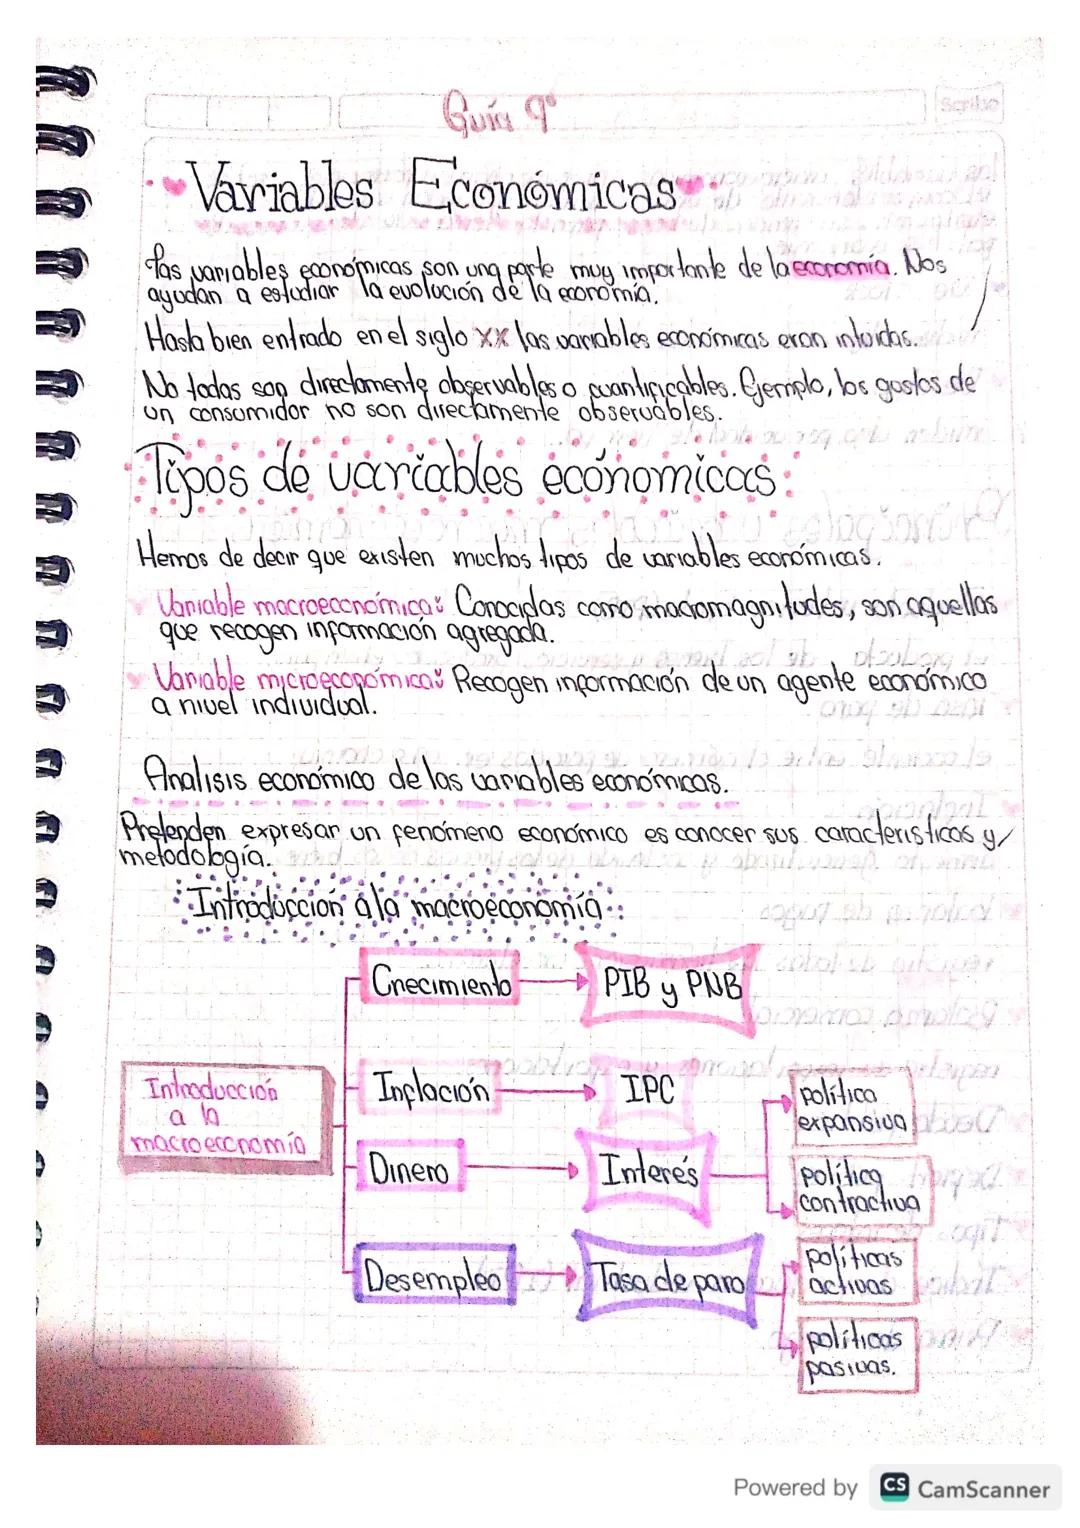 Guía 9°
Scribe
Variables Económicas
Las variables económicas son una parte muy importante de la economía. Nos
ayudan a estudiar la evolución de la economía.
Hasta bien entrado en el siglo XX las variables económicas eran intuidas.
No todas son directamente observables o cuantificables. Ejemplo, los gustos de
un consumidor no son directamente observables.
Tipos de variables económicas:
Hemos de decir que existen muchos tipos de variables económicas.
Variable macroeconómica: Conocidas como macromagnitudes, son aquellas
que recogen información agregada.
Variable microeconómica: Recogen información de un agente económico
a nivel individual.
Analisis económico de las variables económicas.
Pretenden expresar un fenómeno económico es conocer sus caracteristicas y
metodología.
Introducción a la macroeconomía:
Crecimiento
PIB y PNB
Introducción
a la
macroeconomía
Inflación
IPC
Dinero
Interés
política
expansiva
política
contractiva
Desempleo
Tasa de paro
políticas
activas
políticas
pasivas.
Powered by CS CamScanner